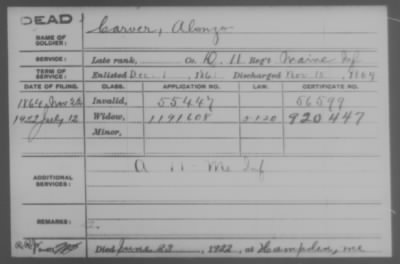 DEAD
NAME OF SOLDIER: Carver, Alonzo
SERVICE: Late rank, Co. D, 11 Reg't Maine Inf
TERM OF SERVICE: Enlisted Dec. 1, 1861 Discharged Nov. 18, 1864
DATE OF FILING. CLASS. APPLICATION NO. LAW. CERTIFICATE NO.
1864, Nov Invalid, 55447 56599
1922 July 12 Widow, 1191608 920 447
Minor,
ADDITIONAL SERVICES: A 11 Me Inf
REMARKS:
Died June 23, 1922, at Hampden, Me